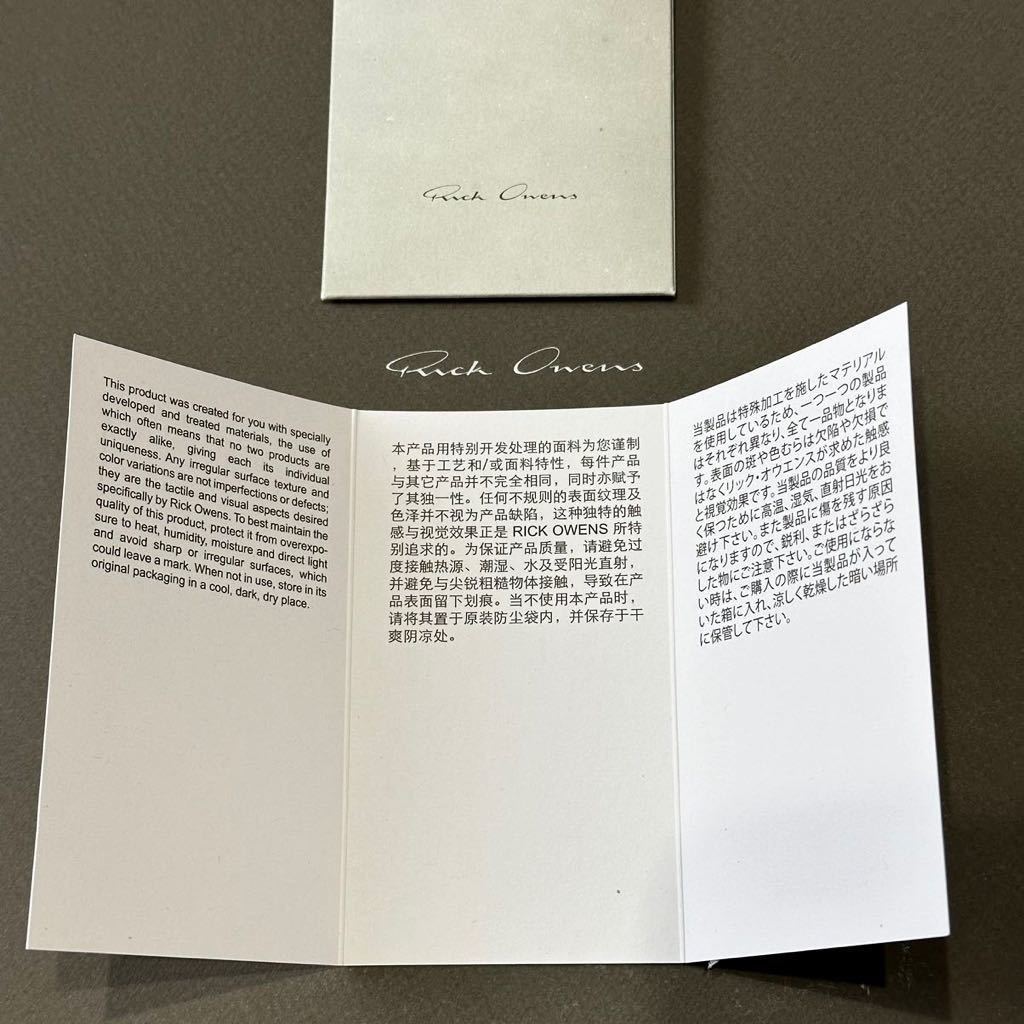 Rick Owens
Rick Owens
This product was created for you with specially
developed and treated materials, the use of
which often means that no two products are
exactly alike, giving each its individual
uniqueness. Any irregular surface texture and
color variations are not imperfections or defects;
they are the tactile and visual aspects desired
specifically by Rick Owens. To best maintain the
quality of this product, protect it from overexpo-
sure to heat, humidity, moisture and direct light
and avoid sharp or irregular surfaces, which
could leave a mark. When not in use, store in its
original packaging in a cool, dark, dry place.
本产品用特别开发处理的面料为您谨制
，基于工艺和/或面料特性，每件产品
与其它产品并不完全相同，同时亦赋予
了其独一性。任何不规则的表面纹理及
色泽并不视为产品缺陷，这种独特的触
感与视觉效果正是 RICK OWENS 所特
别追求的。为保证产品质量，请避免过
度接触热源、潮湿、水及受阳光直射，
并避免与尖锐粗糙物体接触，导致在产
品表面留下划痕。当不使用本产品时，
请将其置于原装防尘袋内，并保存于干
爽阴凉处。
当製品は特殊加工を施したマテリアル
を使用しているため、一つ一つの製品
はそれぞれ異なり、全て一品物となりま
す。表面の斑や色むらは欠陥や欠損で
はなくリック・オウエンスが求めた触感
と視覚効果です。当製品の品質をより良
く保つために高温、湿気、直射日光をお
避け下さい。また製品に傷を残す原因
になりますので、鋭利、またはざらざら
した物にご注意下さい。ご使用にならな
い時は、ご購入の際に当製品が入って
いた箱に入れ、涼しく乾燥した暗い場所
に保管して下さい。